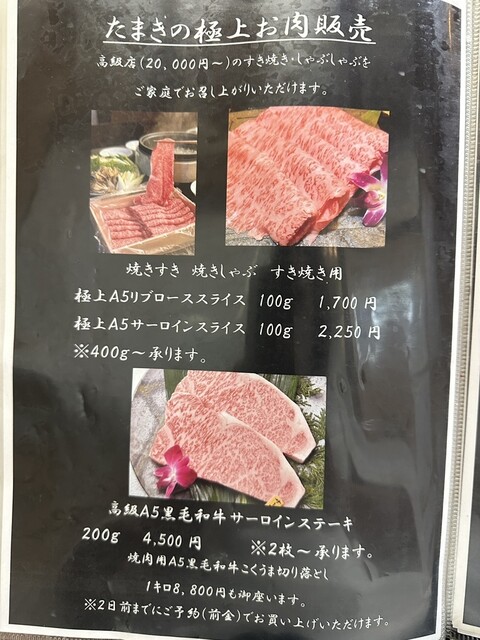 たまぎの極上お肉販売
高級店(20,000円～)のすき焼き・しゃぶしゃぶを
ご家庭でお召し上がりいただけます。
焼きすき 焼きしゃぶ すき焼き用
極上A5リブローススライス 100g 1,700円
極上A5サーロインスライス 100g 2,250円
※400g～承ります。
高級A5黒毛和牛サーロインステーキ
200g 4,500円 ※2枚～承ります。
焼肉用A5黒毛和牛こくうま切り落とし
1キロ8,800円も御座います。
※2日前までにご予約(前金)でお買い上げいただけます。